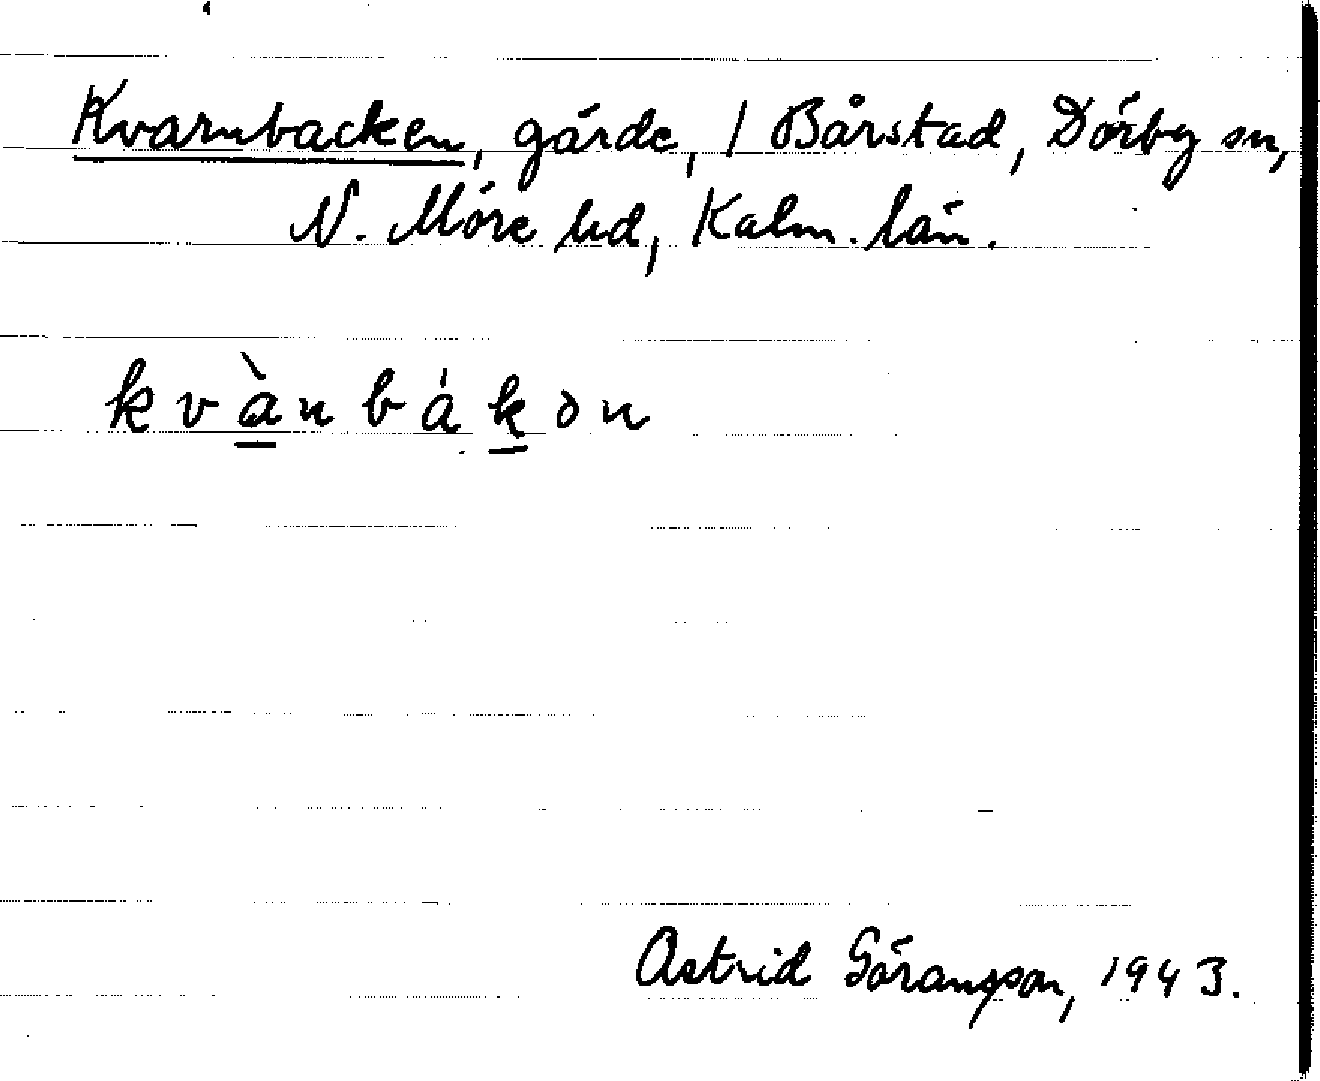 Kvarnbacken, gärde, i Bårstad, Dörby sn,
N. Möre hd, Kalm. län.
kvànbákən
Astrid Göransson, 1943.